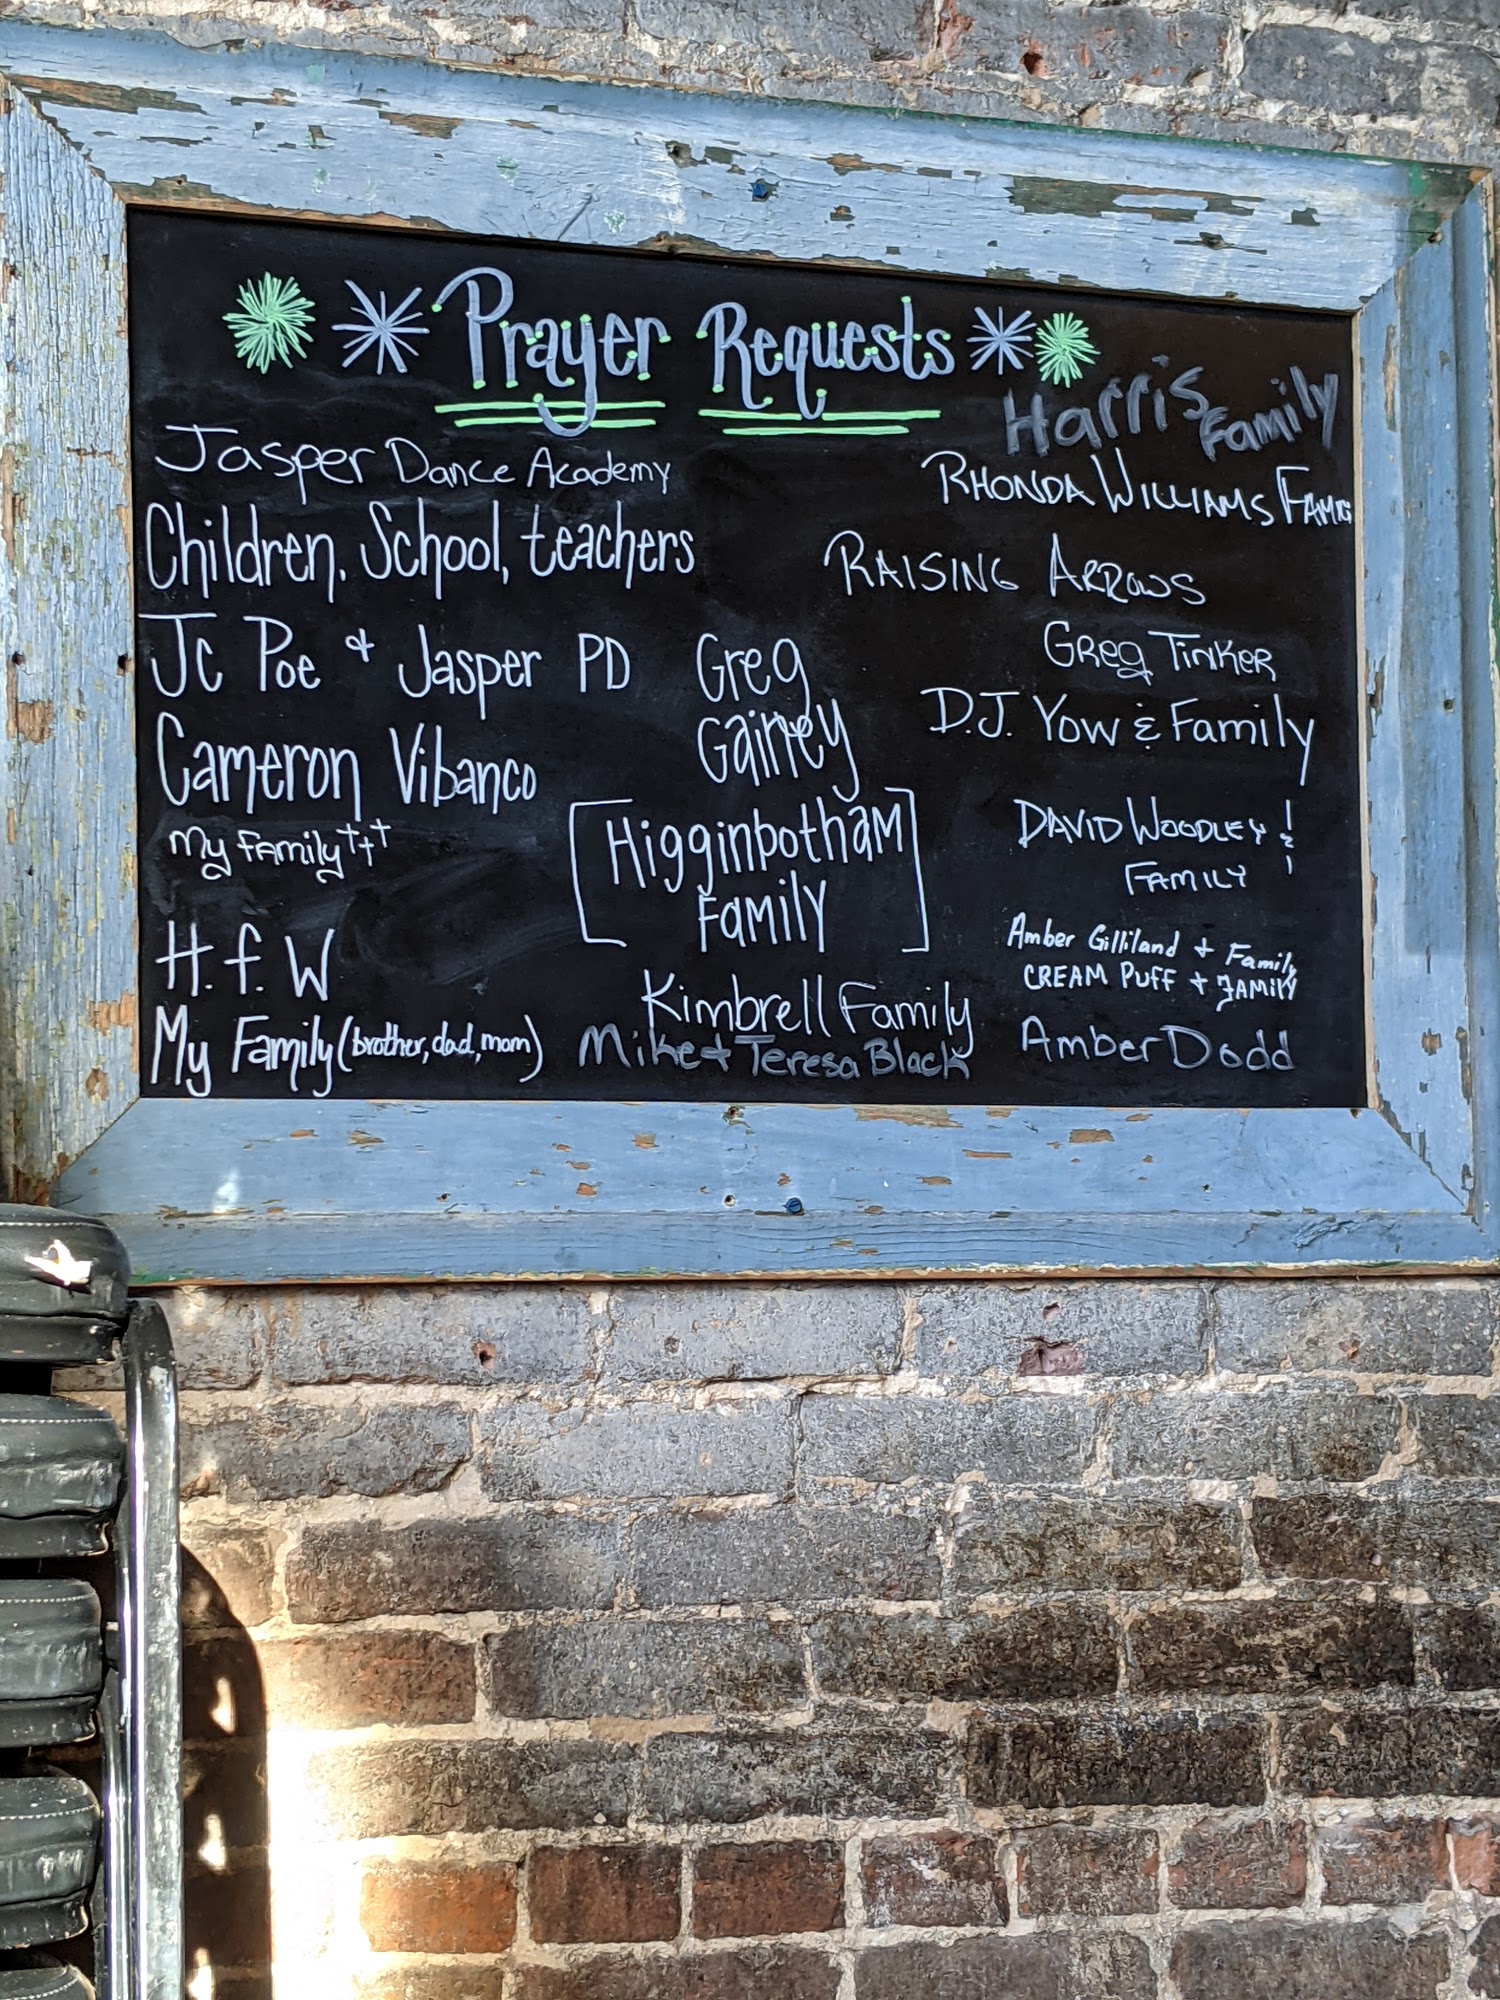 Prayer Requests
Jasper Dance Academy
Children, School, teachers
Jc Poe & Jasper PD
Cameron Vibanco
My Family
H. f. W
My Family (brother, dad, mom)
Greg
Gainey
[Higginbotham
Family]
Kimbrell Family
Mike & Teresa Black
Harris Family
RHONDA WILLIAMS
RAISING ARROWS
GREG TINKER
D.J. YOW & Family
DAVID WOODLEY &
FAMILY
Amber Gilliland + Family
CREAM PUFF + FAMILY
Amber Dodd